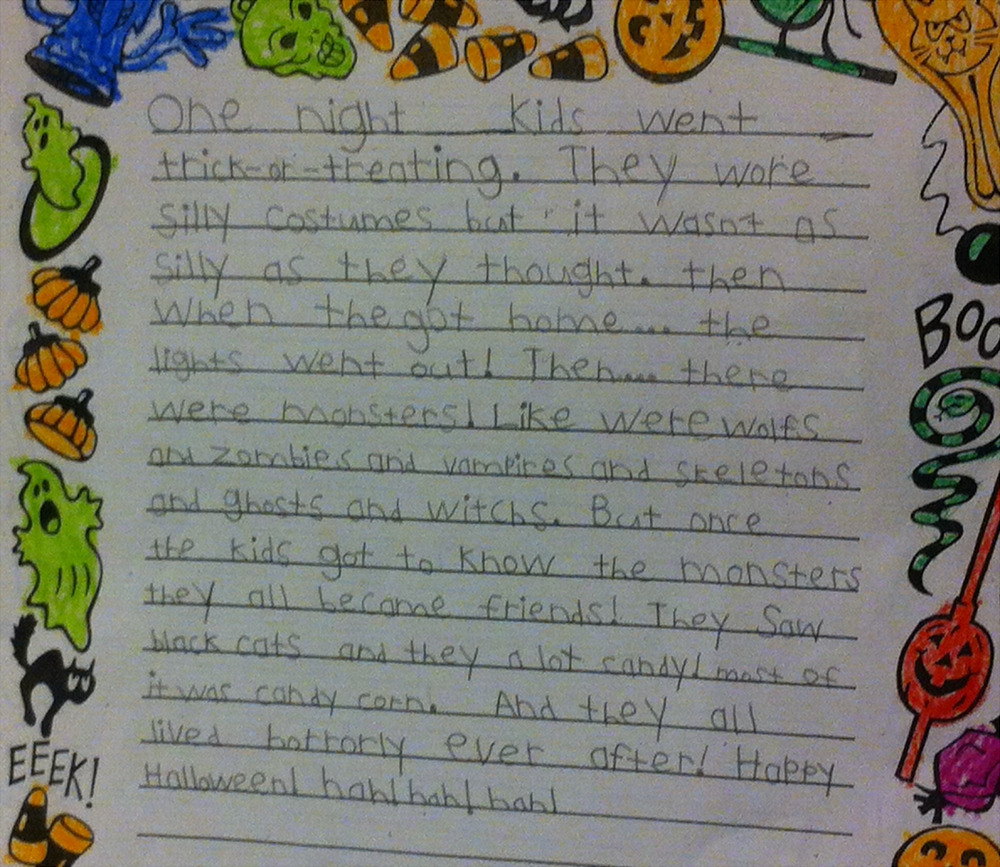 One night Kids went
trick-or-treating. They wore
silly costumes but it wasnt as
silly as they thought. then
when the got home.... the
lights went out! Then.... there
were monsters! Like werewolfs
and zombies and vampires and skeletons
and ghosts and witchs. But once
the kids got to know the monsters
they all became friends! They saw
black cats and they a lot candy! most of
it was candy corn. And they all
lived horrorly ever after! Happy
Halloween! hah! hah! hah!
BOO
EEEK!